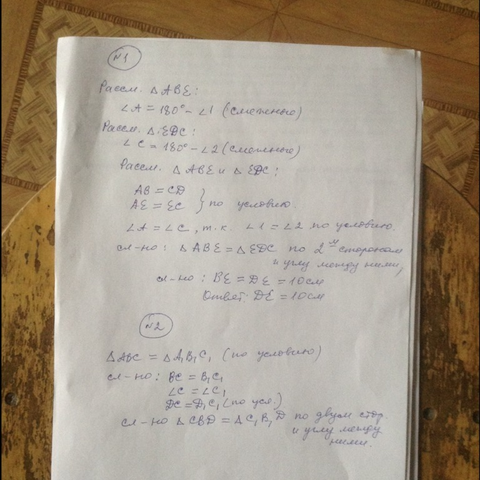 №1
Рассм. △ABE:
∠A = 180° - ∠1 (смежные)
Рассм. △EDC:
∠C = 180° - ∠2 (смежные)
Рассм. △ABE и △EDC:
AB = CD
AE = EC } по условию.
∠A = ∠C, т.к. ∠1 = ∠2 по условию.
сл-но: △ABE = △EDC по 2-м сторонам
и углу между ними,
сл-но: BE = DE = 10см
Ответ: DE = 10см
№2
△ABC = △A₁B₁C₁ (по условию)
сл-но: BC = B₁C₁
∠C = ∠C₁
DC = D₁C₁ (по усл.)
сл-но △CBD = △C₁B₁D по двум стор.
и углу между
ними.